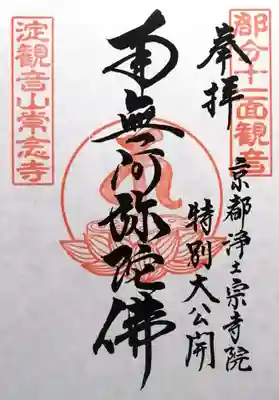 都分十一面観音
奉拝
京都浄土宗寺院
特別大公開
南無阿弥陀佛
淀観音山常念寺